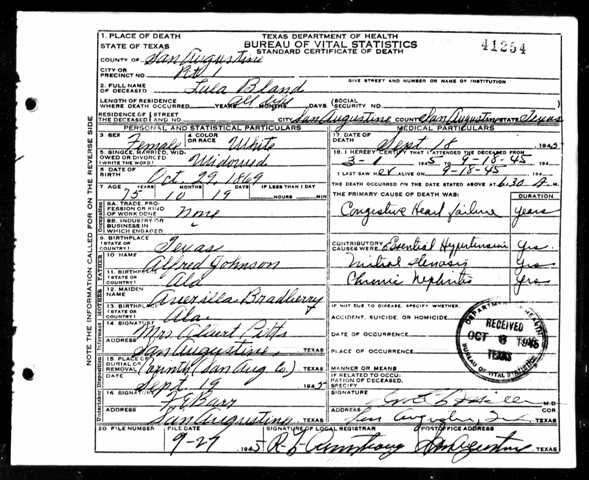 1. PLACE OF DEATH
TEXAS DEPARTMENT OF HEALTH
STATE OF TEXAS
BUREAU OF VITAL STATISTICS
STANDARD CERTIFICATE OF DEATH
41254
COUNTY OF San Augustine
CITY OR PRECINCT NO. Pct 1
GIVE STREET AND NUMBER OR NAME OF INSTITUTION
2. FULL NAME OF DECEASED Lula Bland
LENGTH OF RESIDENCE WHERE DEATH OCCURRED All life YEARS MONTHS DAYS (SOCIAL SECURITY NO.
RESIDENCE OF THE DECEASED (STREET AND NO. CITY San Augustine COUNTY San Augustine STATE Texas
PERSONAL AND STATISTICAL PARTICULARS
MEDICAL PARTICULARS
3. SEX Female
4. COLOR OR RACE White
17. DATE OF DEATH Sept 18 1945
5. SINGLE, MARRIED, WIDOWED OR DIVORCED (WRITE THE WORD) Widowed
18. I HEREBY CERTIFY THAT I ATTENDED THE DECEASED FROM
3-1 1945 TO 9-18-45
6. DATE OF BIRTH Oct. 29, 1869
I LAST SAW HER ALIVE ON 9-18-45
7. AGE 75 YEARS 10 MONTHS 19 DAYS IF LESS THAN 1 DAY HOURS MIN
THE DEATH OCCURRED ON THE DATE STATED ABOVE AT 6:30 A. M.
THE PRIMARY CAUSE OF DEATH WAS: DURATION
8A. TRADE, PROFESSION OR KIND OF WORK DONE None
Congestive Heart failure years
8B. INDUSTRY OR BUSINESS IN WHICH ENGAGED "
9. BIRTHPLACE (STATE OR COUNTRY) Texas
CONTRIBUTORY CAUSES WERE Essential Hypertension yrs.
10. NAME Alfred Johnson
Mitral Stenosis yrs
11. BIRTHPLACE (STATE OR COUNTRY) Ala
Chronic Nephritis yrs
12. MAIDEN NAME Bradberry
IF NOT DUE TO DISEASE, SPECIFY WHETHER:
13. BIRTHPLACE (STATE OR COUNTRY) Ala
ACCIDENT, SUICIDE OR HOMICIDE
14. SIGNATURE Mrs Albert Pitts
DATE OF OCCURRENCE
ADDRESS San Augustine, TEXAS
PLACE OF OCCURRENCE
15. PLACE OF BURIAL OR REMOVAL (San Aug Co.) TEXAS
MANNER OR MEANS
DATE Sept. 19 1945
IF RELATED TO OCCUPATION OF DECEASED, SPECIFY
16. SIGNATURE Barr
SIGNATURE M.D.
ADDRESS San Augustine TEXAS
ADDRESS San Augustine,
20. FILE NUMBER
FILE DATE 9-27 1945
SIGNATURE OF LOCAL REGISTRAR Armstrong
POSTOFFICE ADDRESS San Augustine TEXAS
DEPARTMENT OF HEALTH
RECEIVED
OCT 6 1945
TEXAS
BUREAU OF VITAL STATISTICS
NOTE THE INFORMATION CALLED FOR ON THE REVERSE SIDE
Occupation
FATHER
MOTHER
Informant